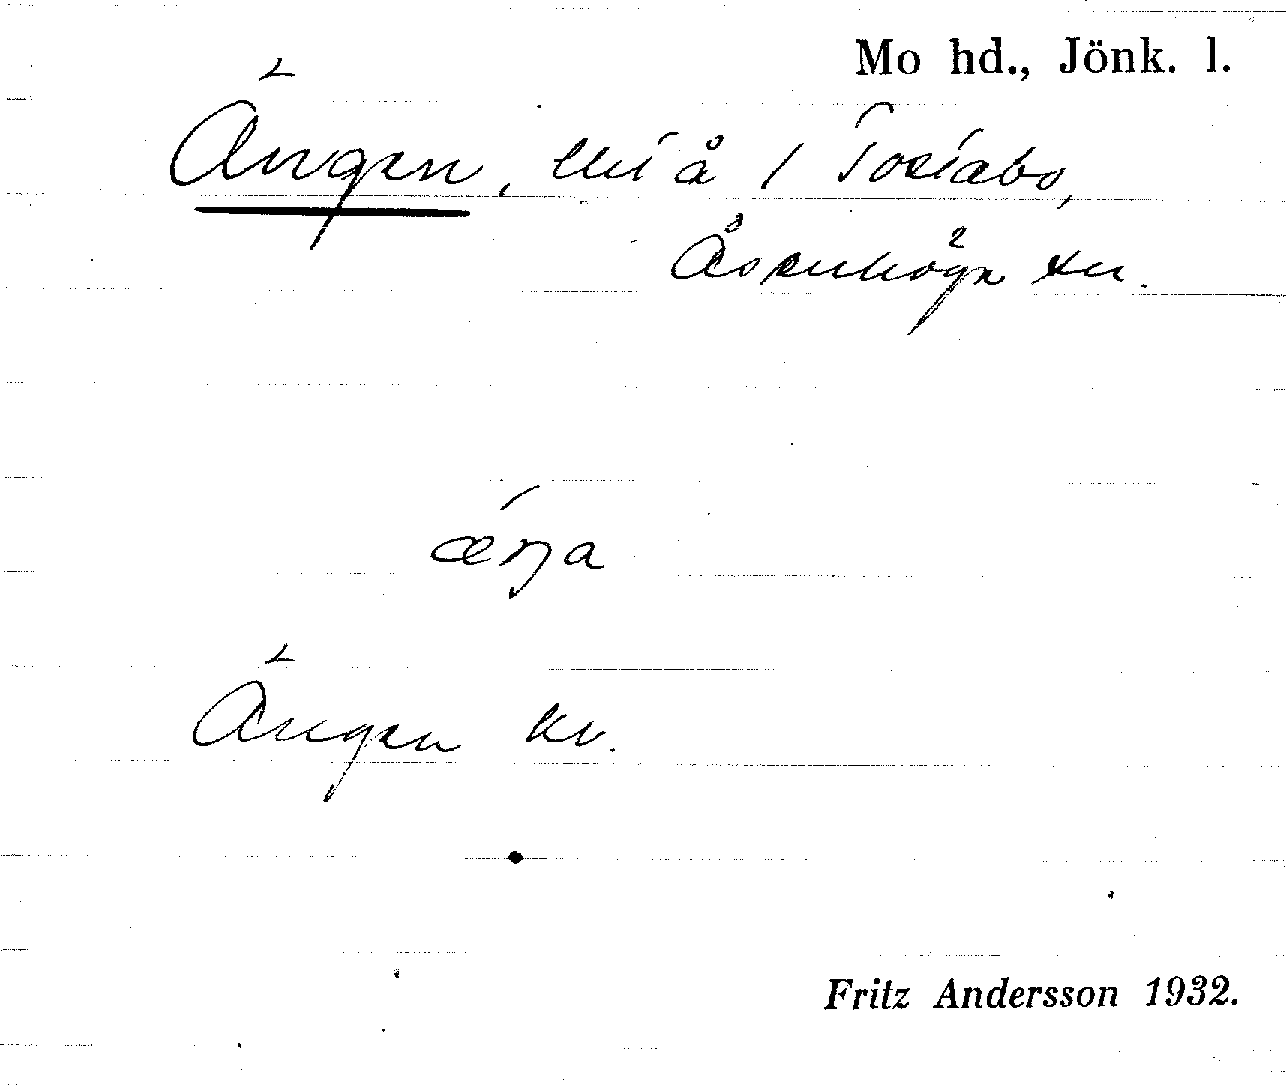 Mo hd., Jönk. l.
Ängen, lht å / Tosíabo,
Åsenhöga sn.
ǽŋa
Ängen kv.
Fritz Andersson 1932.